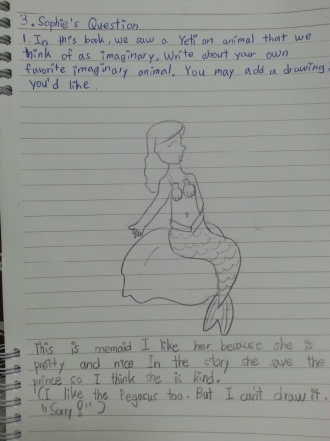 3. Sophie's Question
1. In this book, we saw a Yeti an animal that we
think of as imaginary. Write about your own
favorite imaginary animal. You may add a drawing.
you'd like.
This is memaid I like her because she is
pretty and nice In the story she save the
prince so I think she is kind.
(I like the Pegasuc too. But I can't draw it.
"Sorry!")